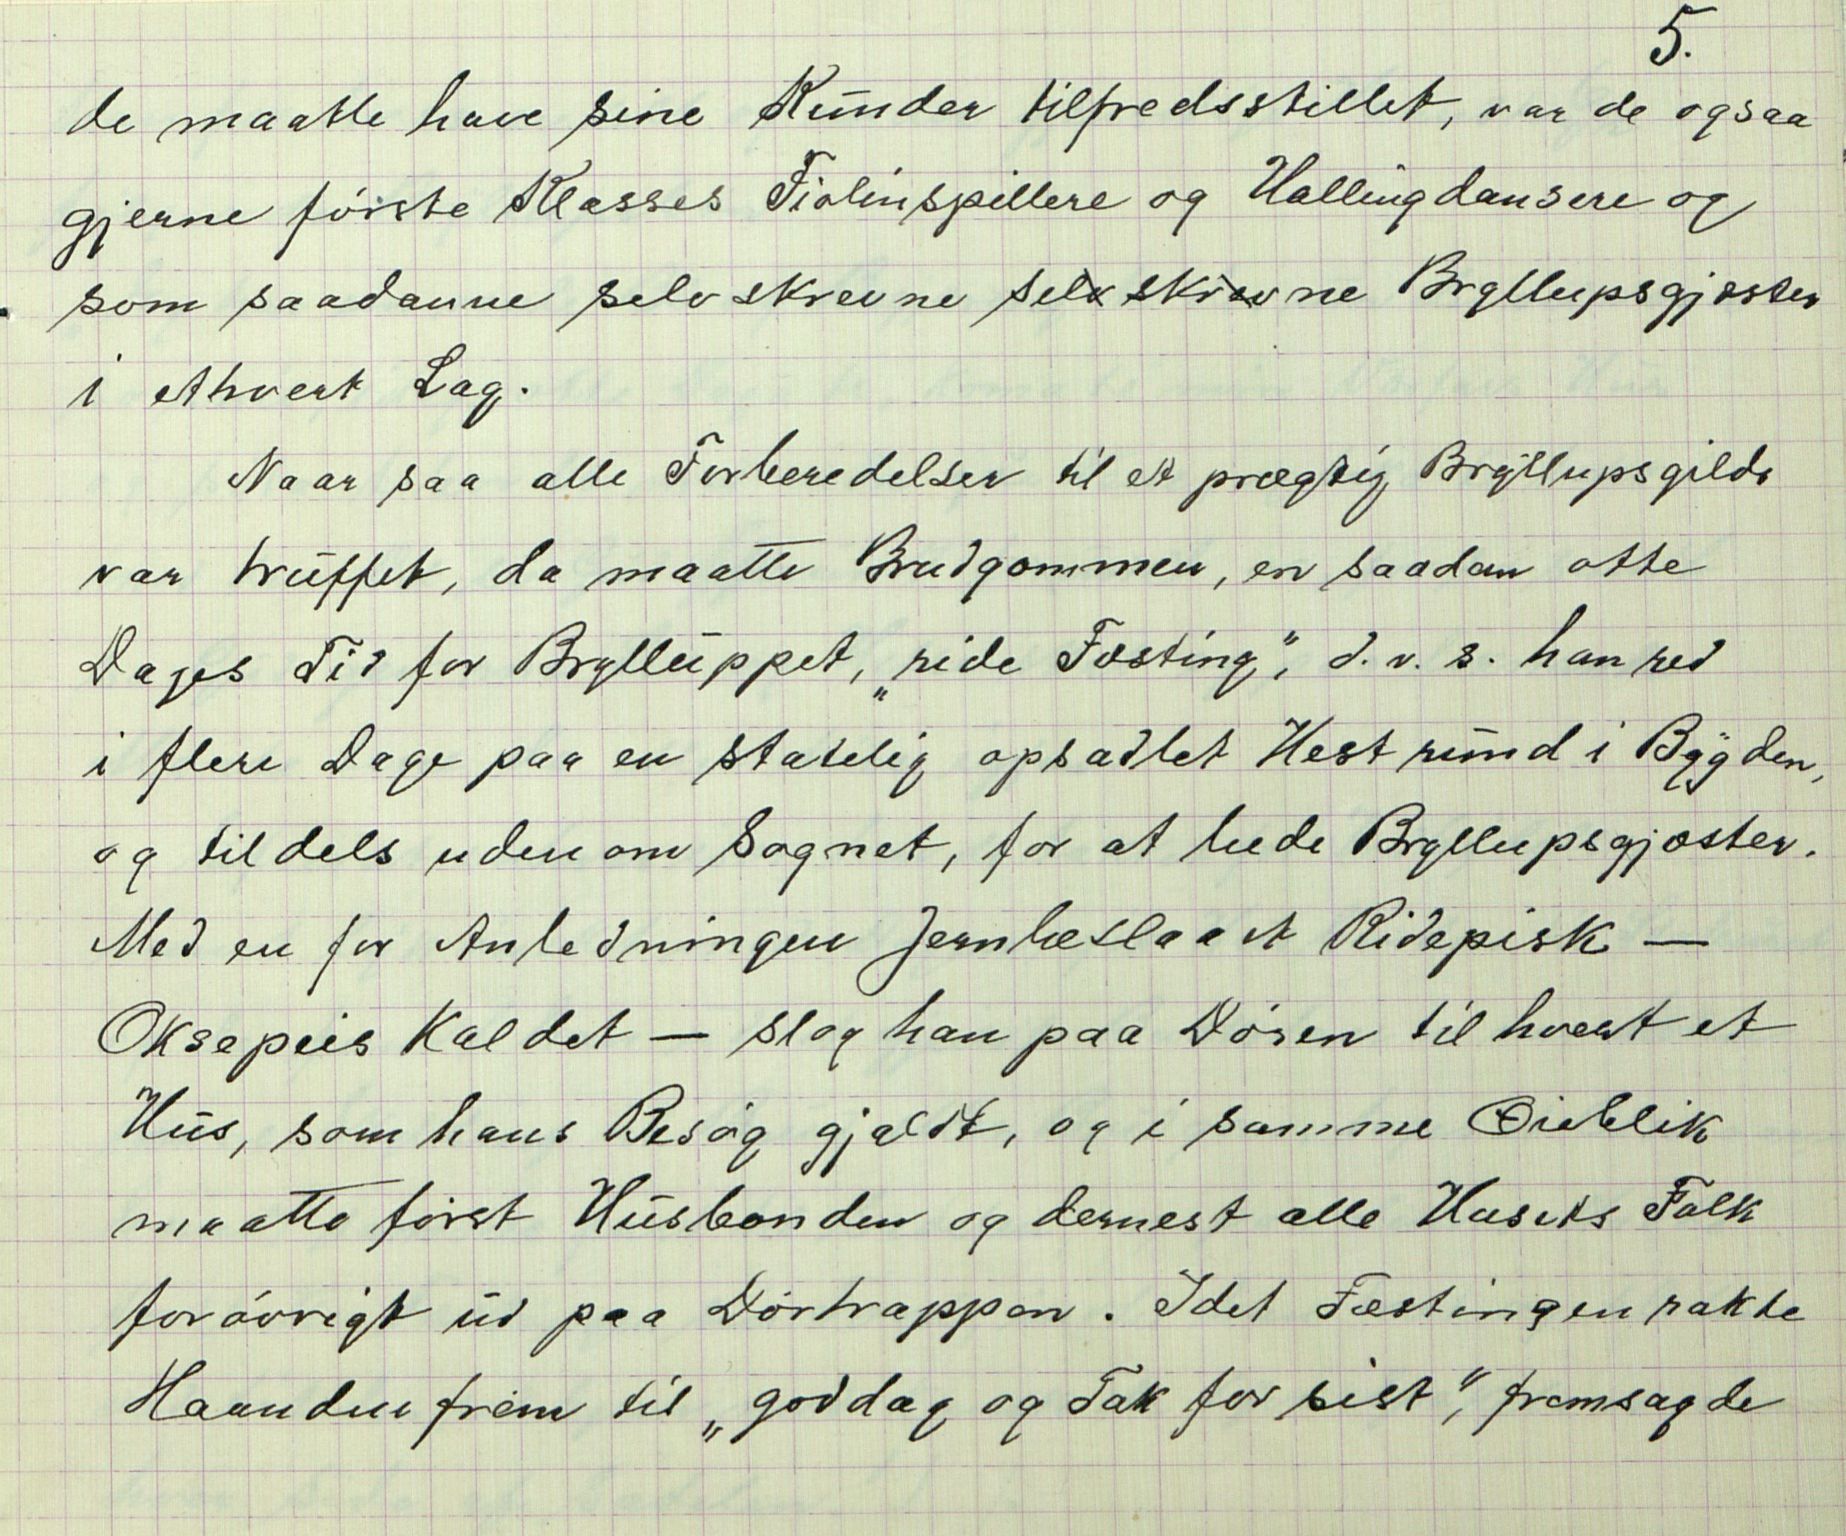 5.
de maatte have sine Kunder tilfredsstillet, var de ogsaa
gjerne første Klasses Fiolinspillere og Hallingdansere og
som saadanne selvskrevne selvskrevne Bryllupsgjæster
i ethvert Lag.
Naar saa alle Forberedelser til et prægtig Bryllupsgilde
var truffet, da maatte Brudgommen, en saadan otte
Dages Tid før Brylluppet, „ride Fæsting“, d.v.s. han red
i flere Dage paa en statelig opsadlet Hest rund i Bygden,
og tildels udenom Sognet, for at bede Bryllupsgjæster.
Med en for Anledningen Jernbeslaaet Ridepisk —
Oksepeis kaldet — slog han paa Døren til hvert et
Hus, som hans Besøg gjaldt, og i samme Øieblik
maatte først Husbonden og dernest alle Husets Folk
forøvrigt ud paa Dørtrappen. Idet Fæstingen rakte
Haanden frem til „goddag og Tak for sist“, fremsagde